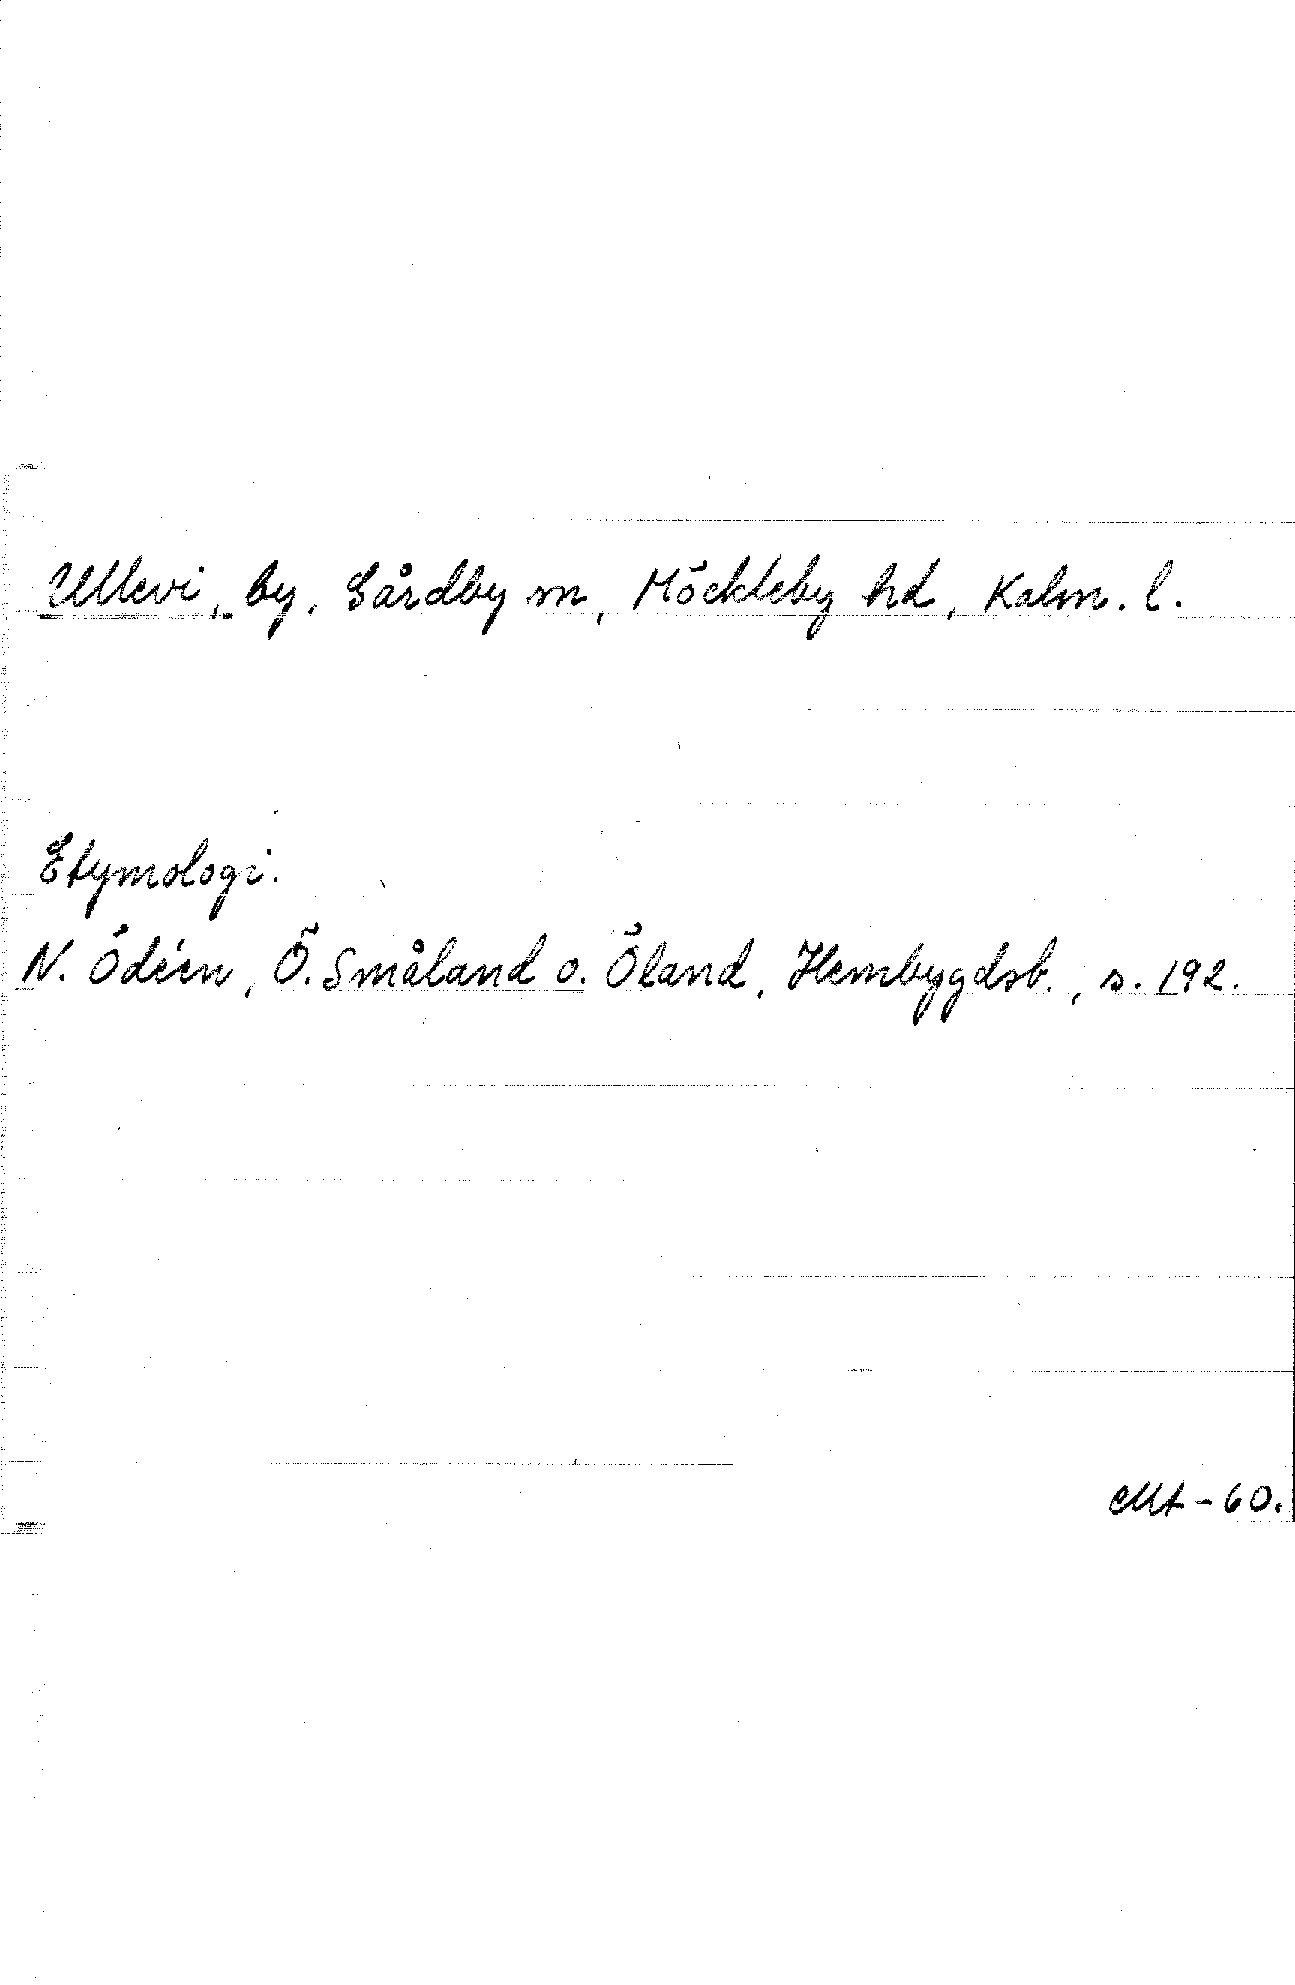 Ullevi, by, Gårdby sn, Möckleby hd, Kalm. l.
Etymologi.
N. Ödéen, Ö. Småland o. Öland, Hembygdsb., s. 192.